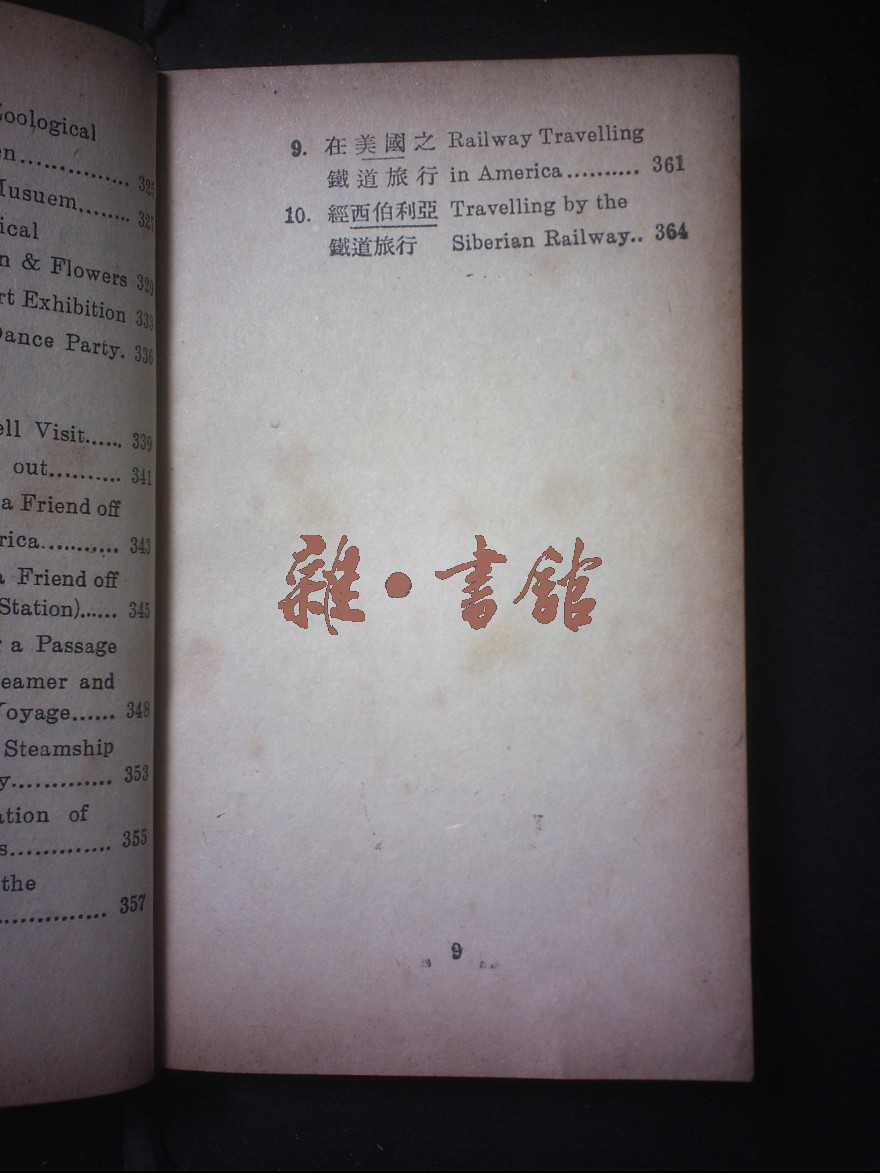 oological
en............... 325
Musuem........ 327
ical
n & Flowers 329
rt Exhibition 333
Dance Party. 336
ell Visit...... 339
out.......... 341
a Friend off
rica........... 343
a Friend off
Station)...... 345
r a Passage
eamer and
Voyage...... 348
Steamship
y............. 353
ation of
s............. 355
the
............... 357
9. 在美國之 Railway Travelling
鐵道旅行 in America.......... 361
10. 經西伯利亞 Travelling by the
鐵道旅行 Siberian Railway.. 364
雜·書館
9